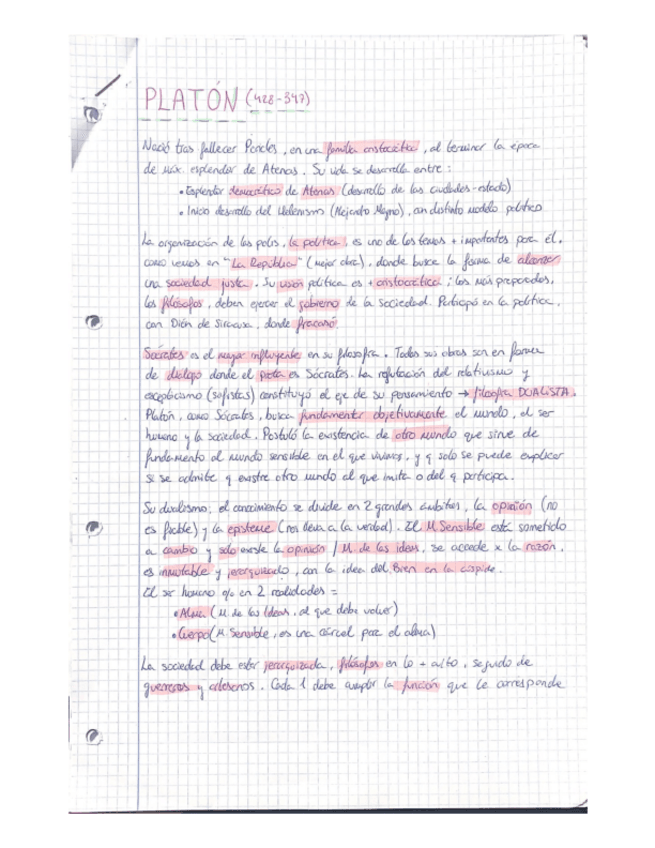 PLATÓN (428-347)
Nació tras fallecer Pericles, en una familia aristocrática, al terminar la época
de máx. esplendor de Atenas. Su vida se desarrolla entre:
• Esplendor democrático de Atenas (desarrollo de las ciudades-estado)
• Inicio desarrollo del Helenismo (Alejandro Magno), con distinto modelo político
La organización de las polis, la política, es uno de los temas + importantes para él,
como vemos en "La República" (mejor obra), donde busca la forma de alcanzar
una sociedad justa. Su visión política es + aristocrática; los más preparados,
los filósofos, deben ejercer el gobierno de la sociedad. Participó en la política,
con Dión de Siracusa, donde fracasó.
Sócrates es el mayor influyente en su filosofía. Todas sus obras son en forma
de diálogo donde el prota es Sócrates. La refutación del relativismo y
escepticismo (sofistas) constituyó el eje de su pensamiento → filosofía DUALISTA.
Platón, como Sócrates, busca fundamentar objetivamente el mundo, el ser
humano y la sociedad. Postuló la existencia de otro mundo que sirve de
fundamento al mundo sensible en el que vivimos, y q solo se puede explicar
si se admite q existe otro mundo al que imita o del q participa.
Su dualismo; el conocimiento se divide en 2 grandes ámbitos, la opinión (no
es fiable) y la episteme (nos lleva a la verdad). El M. Sensible está sometido
a cambio y solo existe la opinión / M. de las ideas, se accede x la razón,
es inmutable y jerarquizado, con la idea del Bien en la cúspide.
El ser humano en 2 realidades =
• Alma (M. de las Ideas, al que debe volver)
• Cuerpo (M Sensible, es una cárcel para el alma)
La sociedad debe estar jerarquizada, filósofos en lo + alto, seguido de
guerreros y artesanos. Cada 1 debe cumplir la función que le corresponde